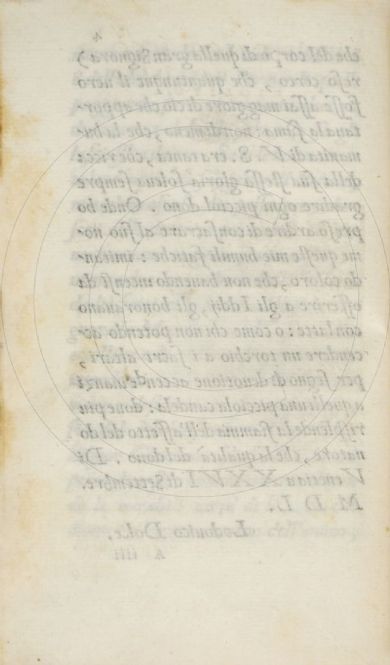 4
che del cor, o da quella gran Signora)
reso cerco, che quantunque il uero
fosse assai maggiore di cio che appor-
taua la fama: nondimeno, che la hu-
manità di V. S. era tanta, che, ricca
della sua stessa gloria soleua sempre
gradire ogni picciol dono. Onde ho
preso ardire di consacrare al suo no-
me queste mie humili fatiche: imitan-
do coloro, che non hauendo incensi da
offerire a gli Iddij, gli honorauano
con latte: o come chi non potendo ac-
cendere un torchio a i sacri altari,
per segno di deuotione accende inanzi
a quelli una picciola candela: doue piu
risplende la fiamma dell'affetto del do
natore, che la qualità del dono. Di
Venetia a XXVI di Settembre.
M D L.
Lodouico Dolce.
A iiii